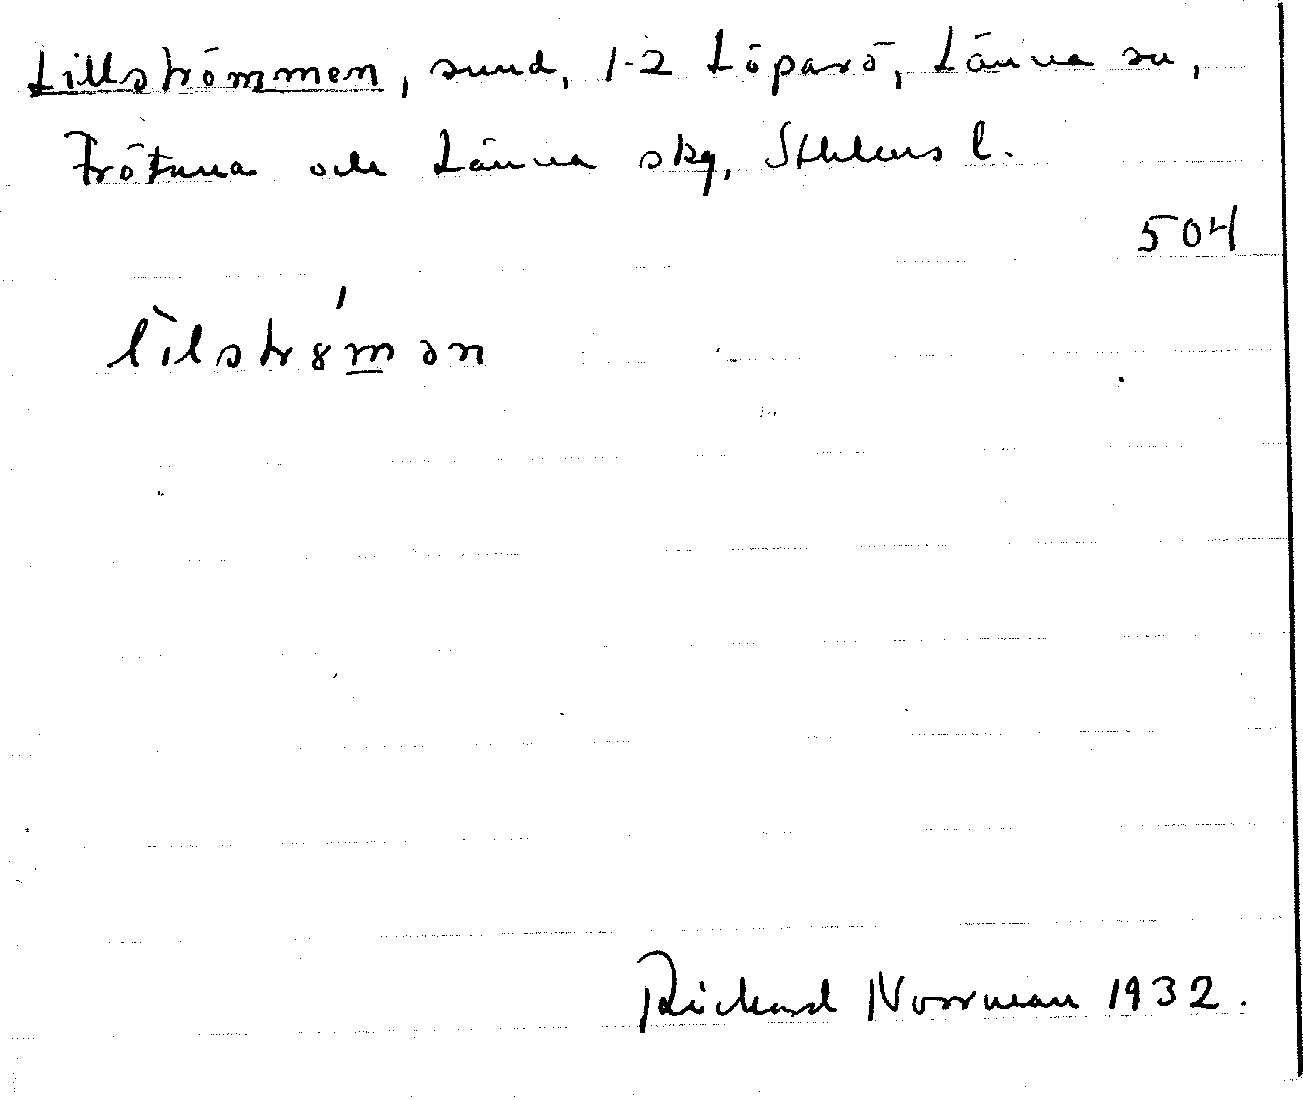 Lillströmmen, sund, 1-2 Löparö, Länna sn,
Frötuna och Länna skg, Sthlms l.
504
lìlstrø´m̲ən
Rickard Norrman 1932.